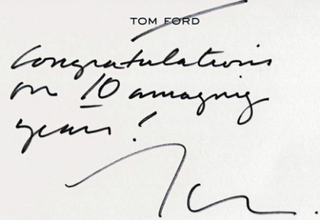 TOM FORD
Congratulations
on 10 amazing
years!
Tom